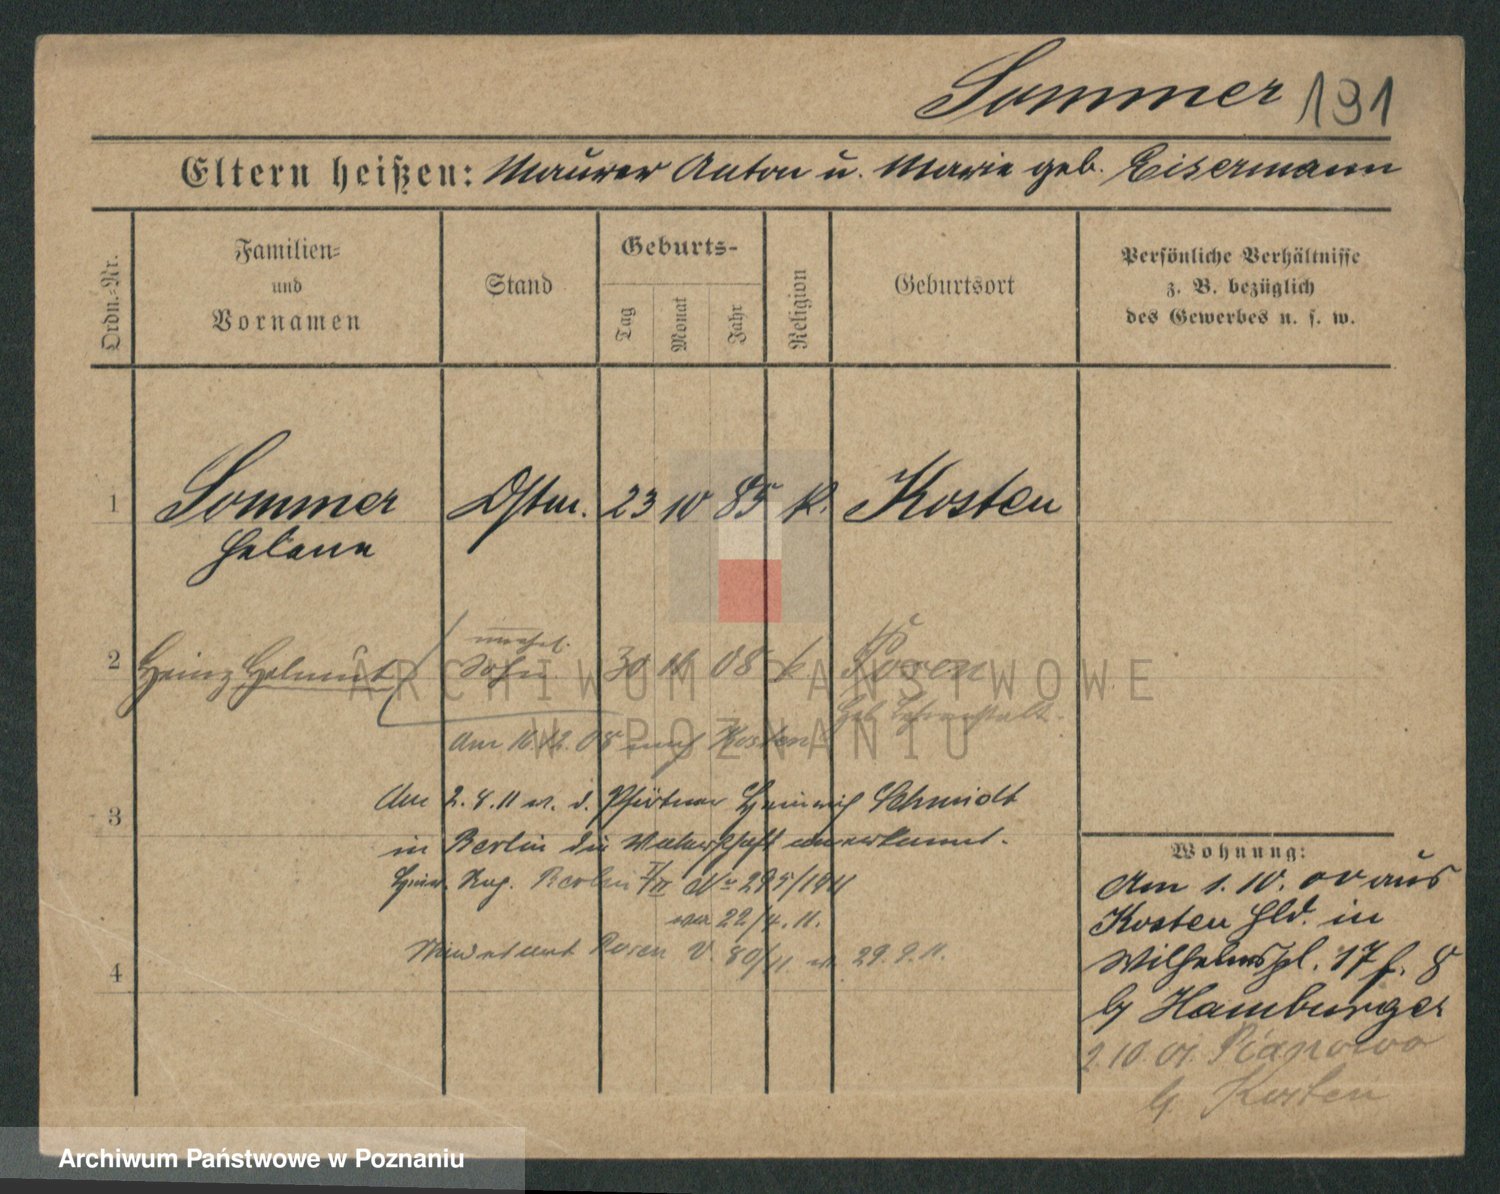 Sommer 191
Eltern heißen: Maurer Anton u. Marie geb. Eisermann
Ordn.-Nr.
Familien-
und
Vornamen
Stand
Geburts-
Tag
Monat
Jahr
Religion
Geburtsort
Persönliche Verhältnisse
z. B. bezüglich
des Gewerbes u. s. w.
1 Sommer Dstm. 23 10 85 k. Kosten
Helene
unehel.
2 Heinz Helmut Sohn 30 11 08 k. Posen
Am 16.12.08 nach Kosten
Am 2.4.11 v. d. Pförtner Heinrich Schmidt
3
in Berlin die Vaterschaft anerkannt.
Berlin No 295/1911
22/4.11.
Posen V. 80/11 29.9.11.
4
Wohnung:
Am 1.10. 00 aus
Kosten Hld. in
Wilhelmspl. 17 f. 8
b/ Hamburger
2.10.01. Pianowo
b/ Kosten
ARCHIWUM PAŃSTWOWE
W POZNANIU
Archiwum Państwowe w Poznaniu